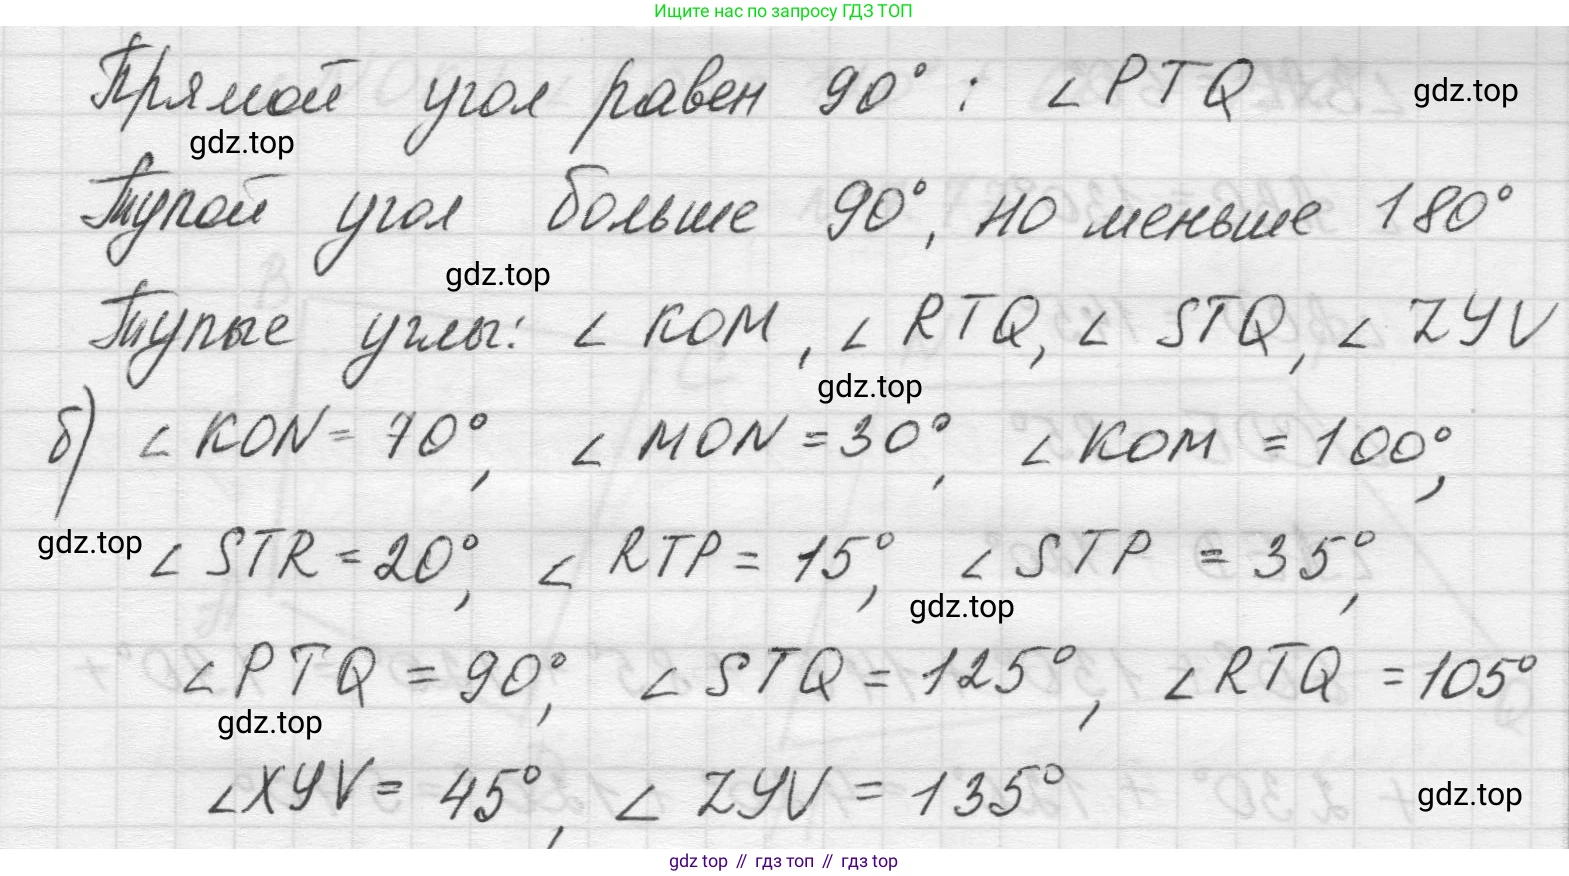 Ищите нас по запросу ГДЗ ТОП
Прямой угол равен 90° : ∠PTQ
gdz.top
gdz.top
Тупой угол больше 90°, но меньше 180°
gdz.top
Тупые углы: ∠KOM, ∠RTQ, ∠STQ, ∠ZYV
gdz.top
б) ∠KON = 70°, ∠MON = 30°, ∠KOM = 100°,
gdz.top
∠STR = 20°, ∠RTP = 15°, ∠STP = 35°,
gdz.top
∠PTQ = 90°, ∠STQ = 125°, ∠RTQ = 105°
gdz.top
∠XYV = 45°, ∠ZYV = 135°
gdz.top
gdz top // гдз топ // гдз top